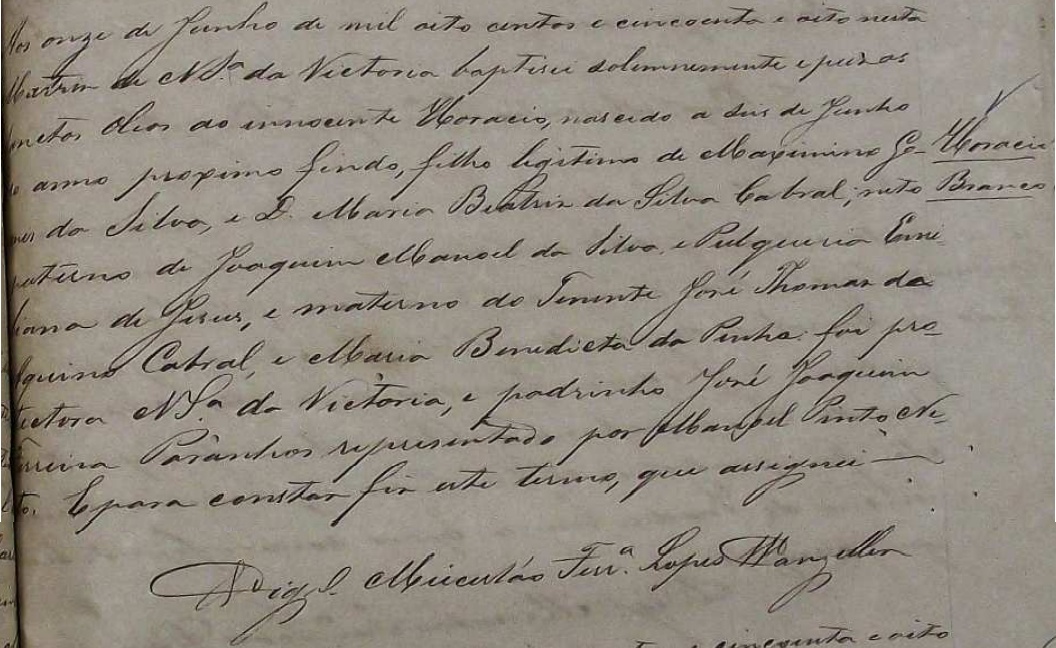 Aos onze de Junho de mil oito centos e cincoenta e oito nesta
Matriz de N. Sa. da Victoria baptisei solemnemente e puz os
Santos Oleos ao innocente Horacio, nascido a seis de Junho
do anno proximo findo, filho legitimo de Maximino Go-
mes da Silva, e D. Maria Beatriz da Silva Cabral; neto
paterno de Joaquim Manoel da Silva, e Pulqueria Emi-
liana de Jesus, e materno do Tenente José Thomas de
Aquino Cabral, e Maria Benedicta da Penha: foi pro-
tectora N. Sa. da Victoria, e padrinho José Joaquim
Ferreira Paranhos representado por Manoel Pinto Ne-
to. E para constar fiz este termo, que assignei
Vigo. Mieceslão Ferra. Lopes Wanzeller
Horacio
Branco
cincoenta e oito